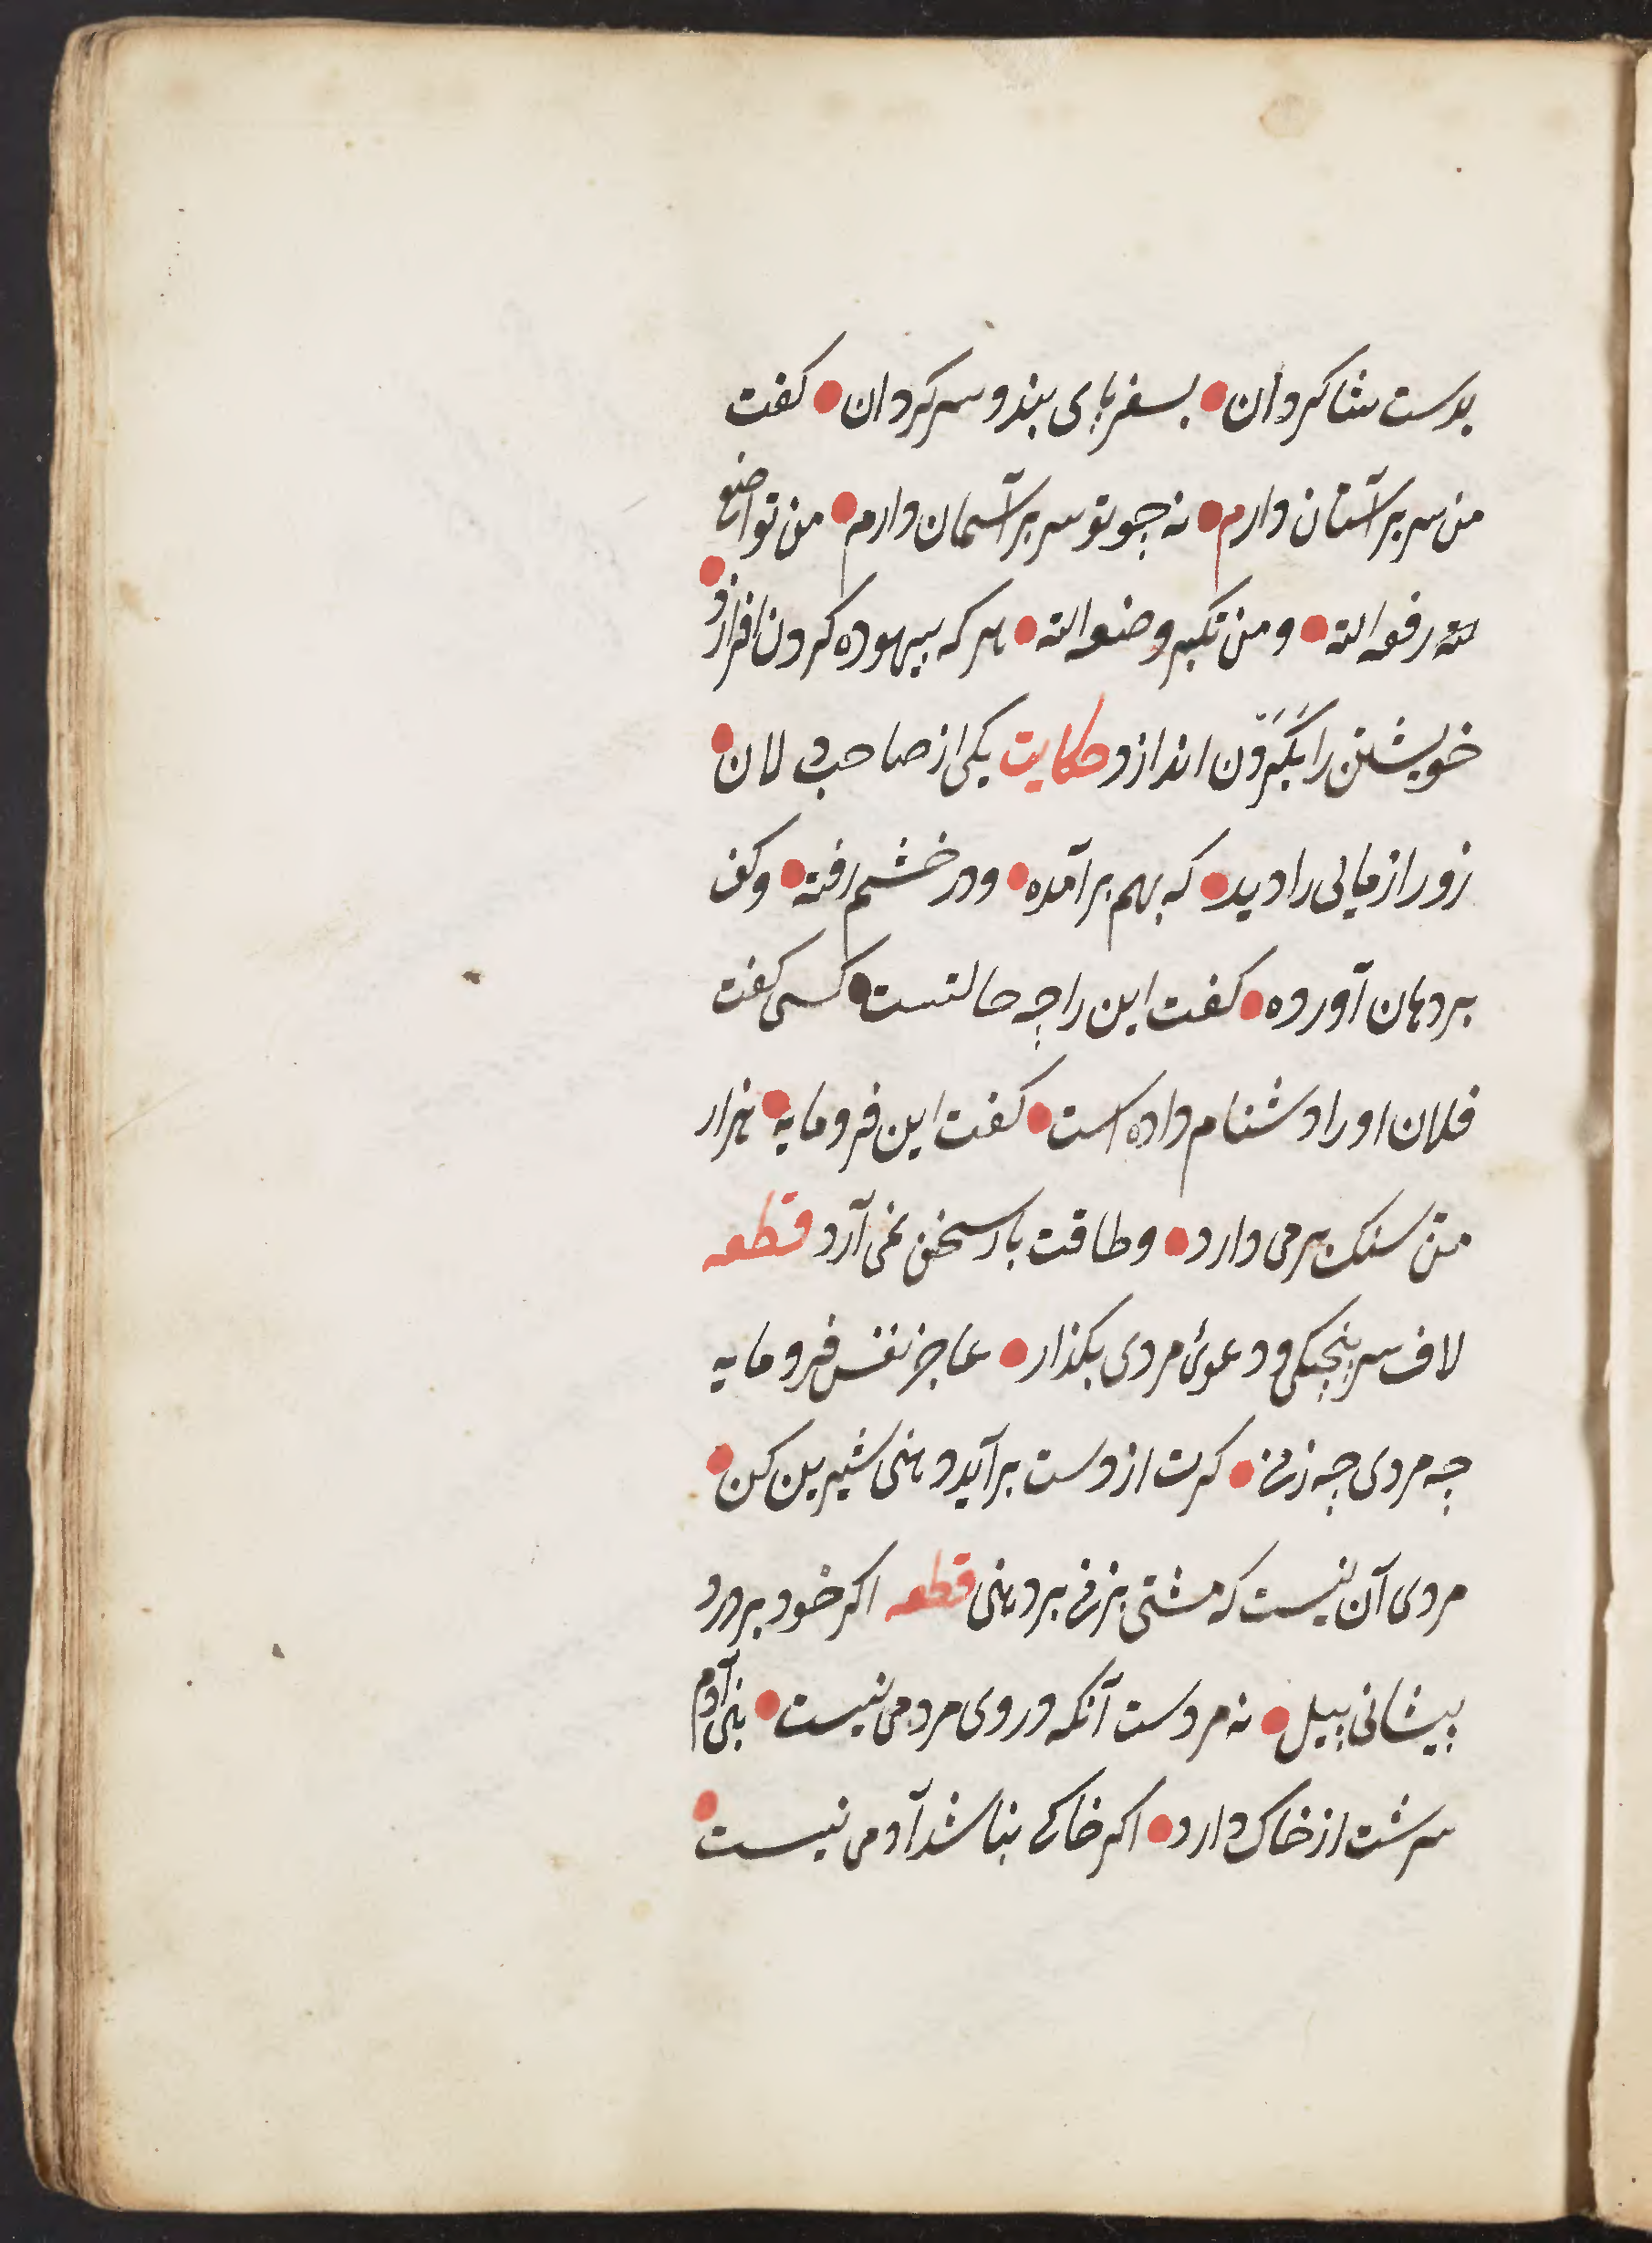 بدست شاکردان • بسفر پای بند و سرکردان • کفت
من سر بر آستان دارم • نه چو تو سر بر آسمان دارم • من تواضع
لله رفعه الله • و من تکبر وضعه الله • هر که بیهوده کردن افرازد •
خویشتن را بگردن اندازد حکایت یکی از صاحب دلان •
زور ازمایی را دید • که بهم بر آمده • و در خشم رفته • و کف
بر دهان آورده • کفت این را چه حالتست • کسی کفت
فلان او را دشنام داده است • کفت این فرومایه • هزار
من سنک بر می دارد • و طاقت بار سخن نمی آرد قطعه
لاف سر پنجکی و دعویٔ مردی بکذار • عاجز نفس فرومایه
چه مردی چه زنی • کرت از دست بر آید دهنی شیرین کن •
مردی آن نیست که مشتی بزنی بر دهنی قطعه اکر خود بر درد
پیشانی پیل • نه مردست آنکه در وی مردمی نیست • بنی آدم
سرشت از خاک دارد • اکر خاکی نباشد آدمی نیست •